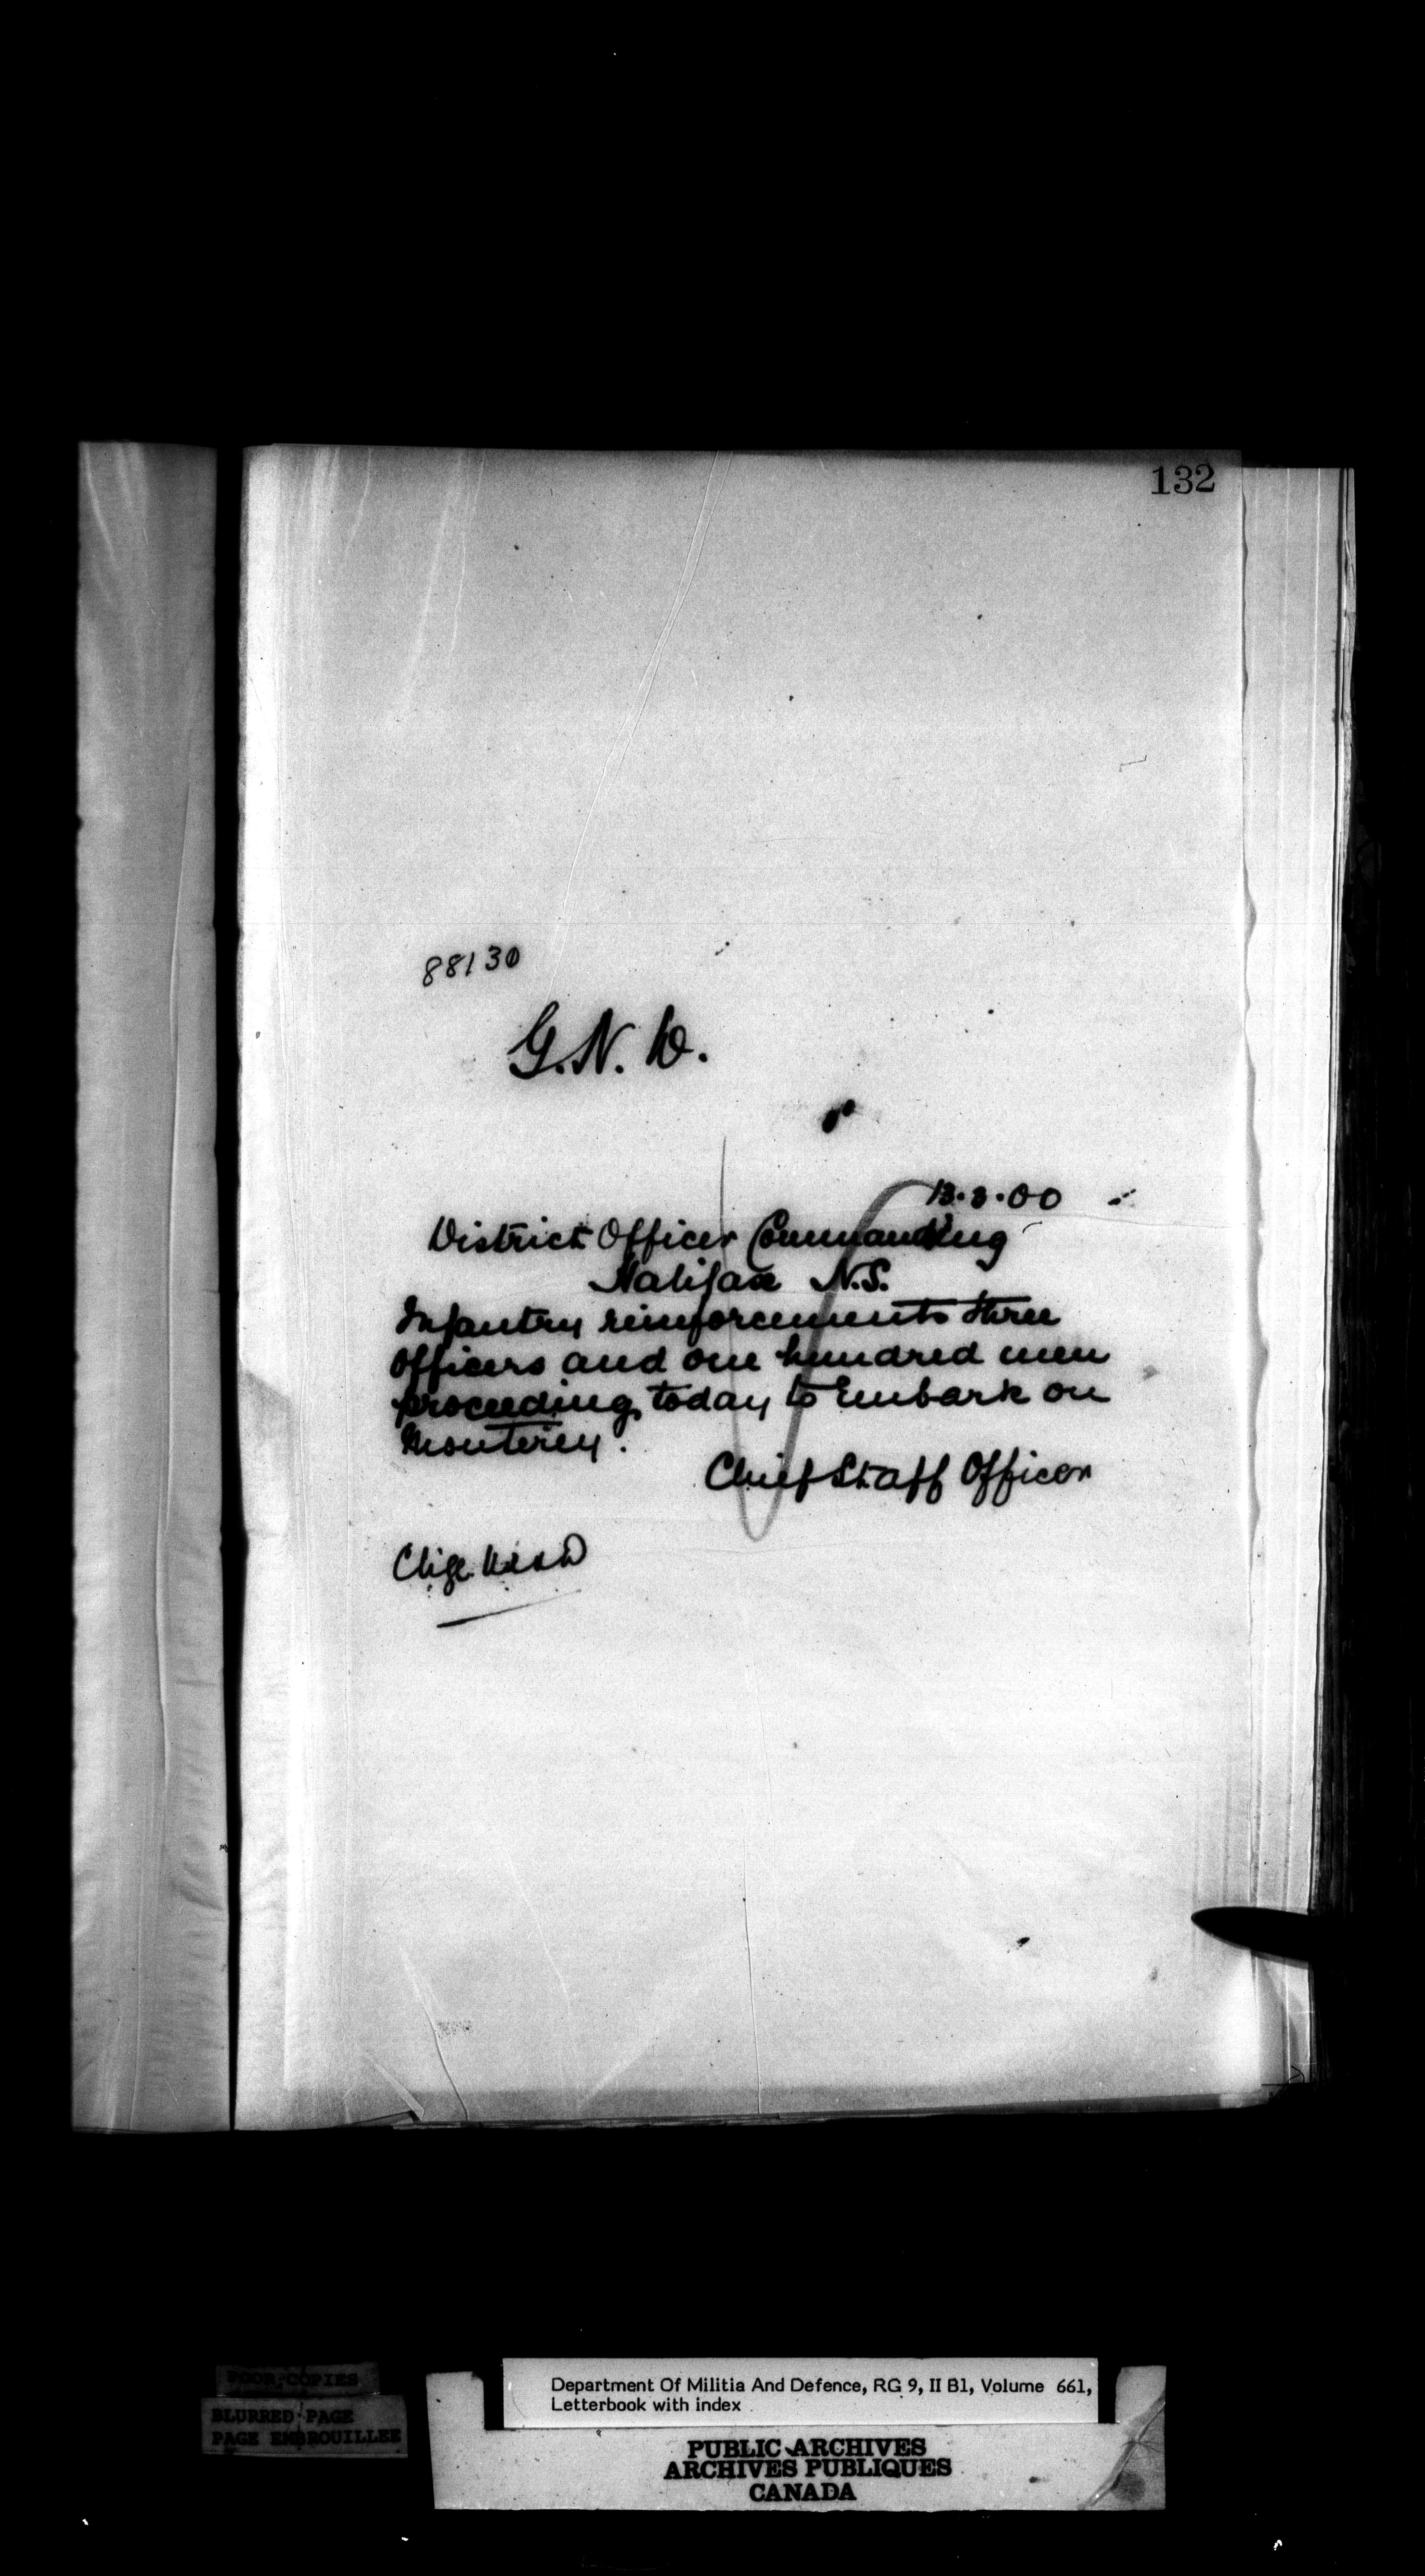 132
88130
G.N.W.
13.3.00
District Officer Commanding
Halifax N.S.
Infantry reinforcements three
Officers and one hundred men
proceeding today to Embark on
Monterey.
Chief Staff Officer
Chge.
POOR COPIES
BLURRED PAGE
PAGE EMBROUILLEE
Department Of Militia And Defence, RG 9, II B1, Volume 661,
Letterbook with index
PUBLIC ARCHIVES
ARCHIVES PUBLIQUES
CANADA